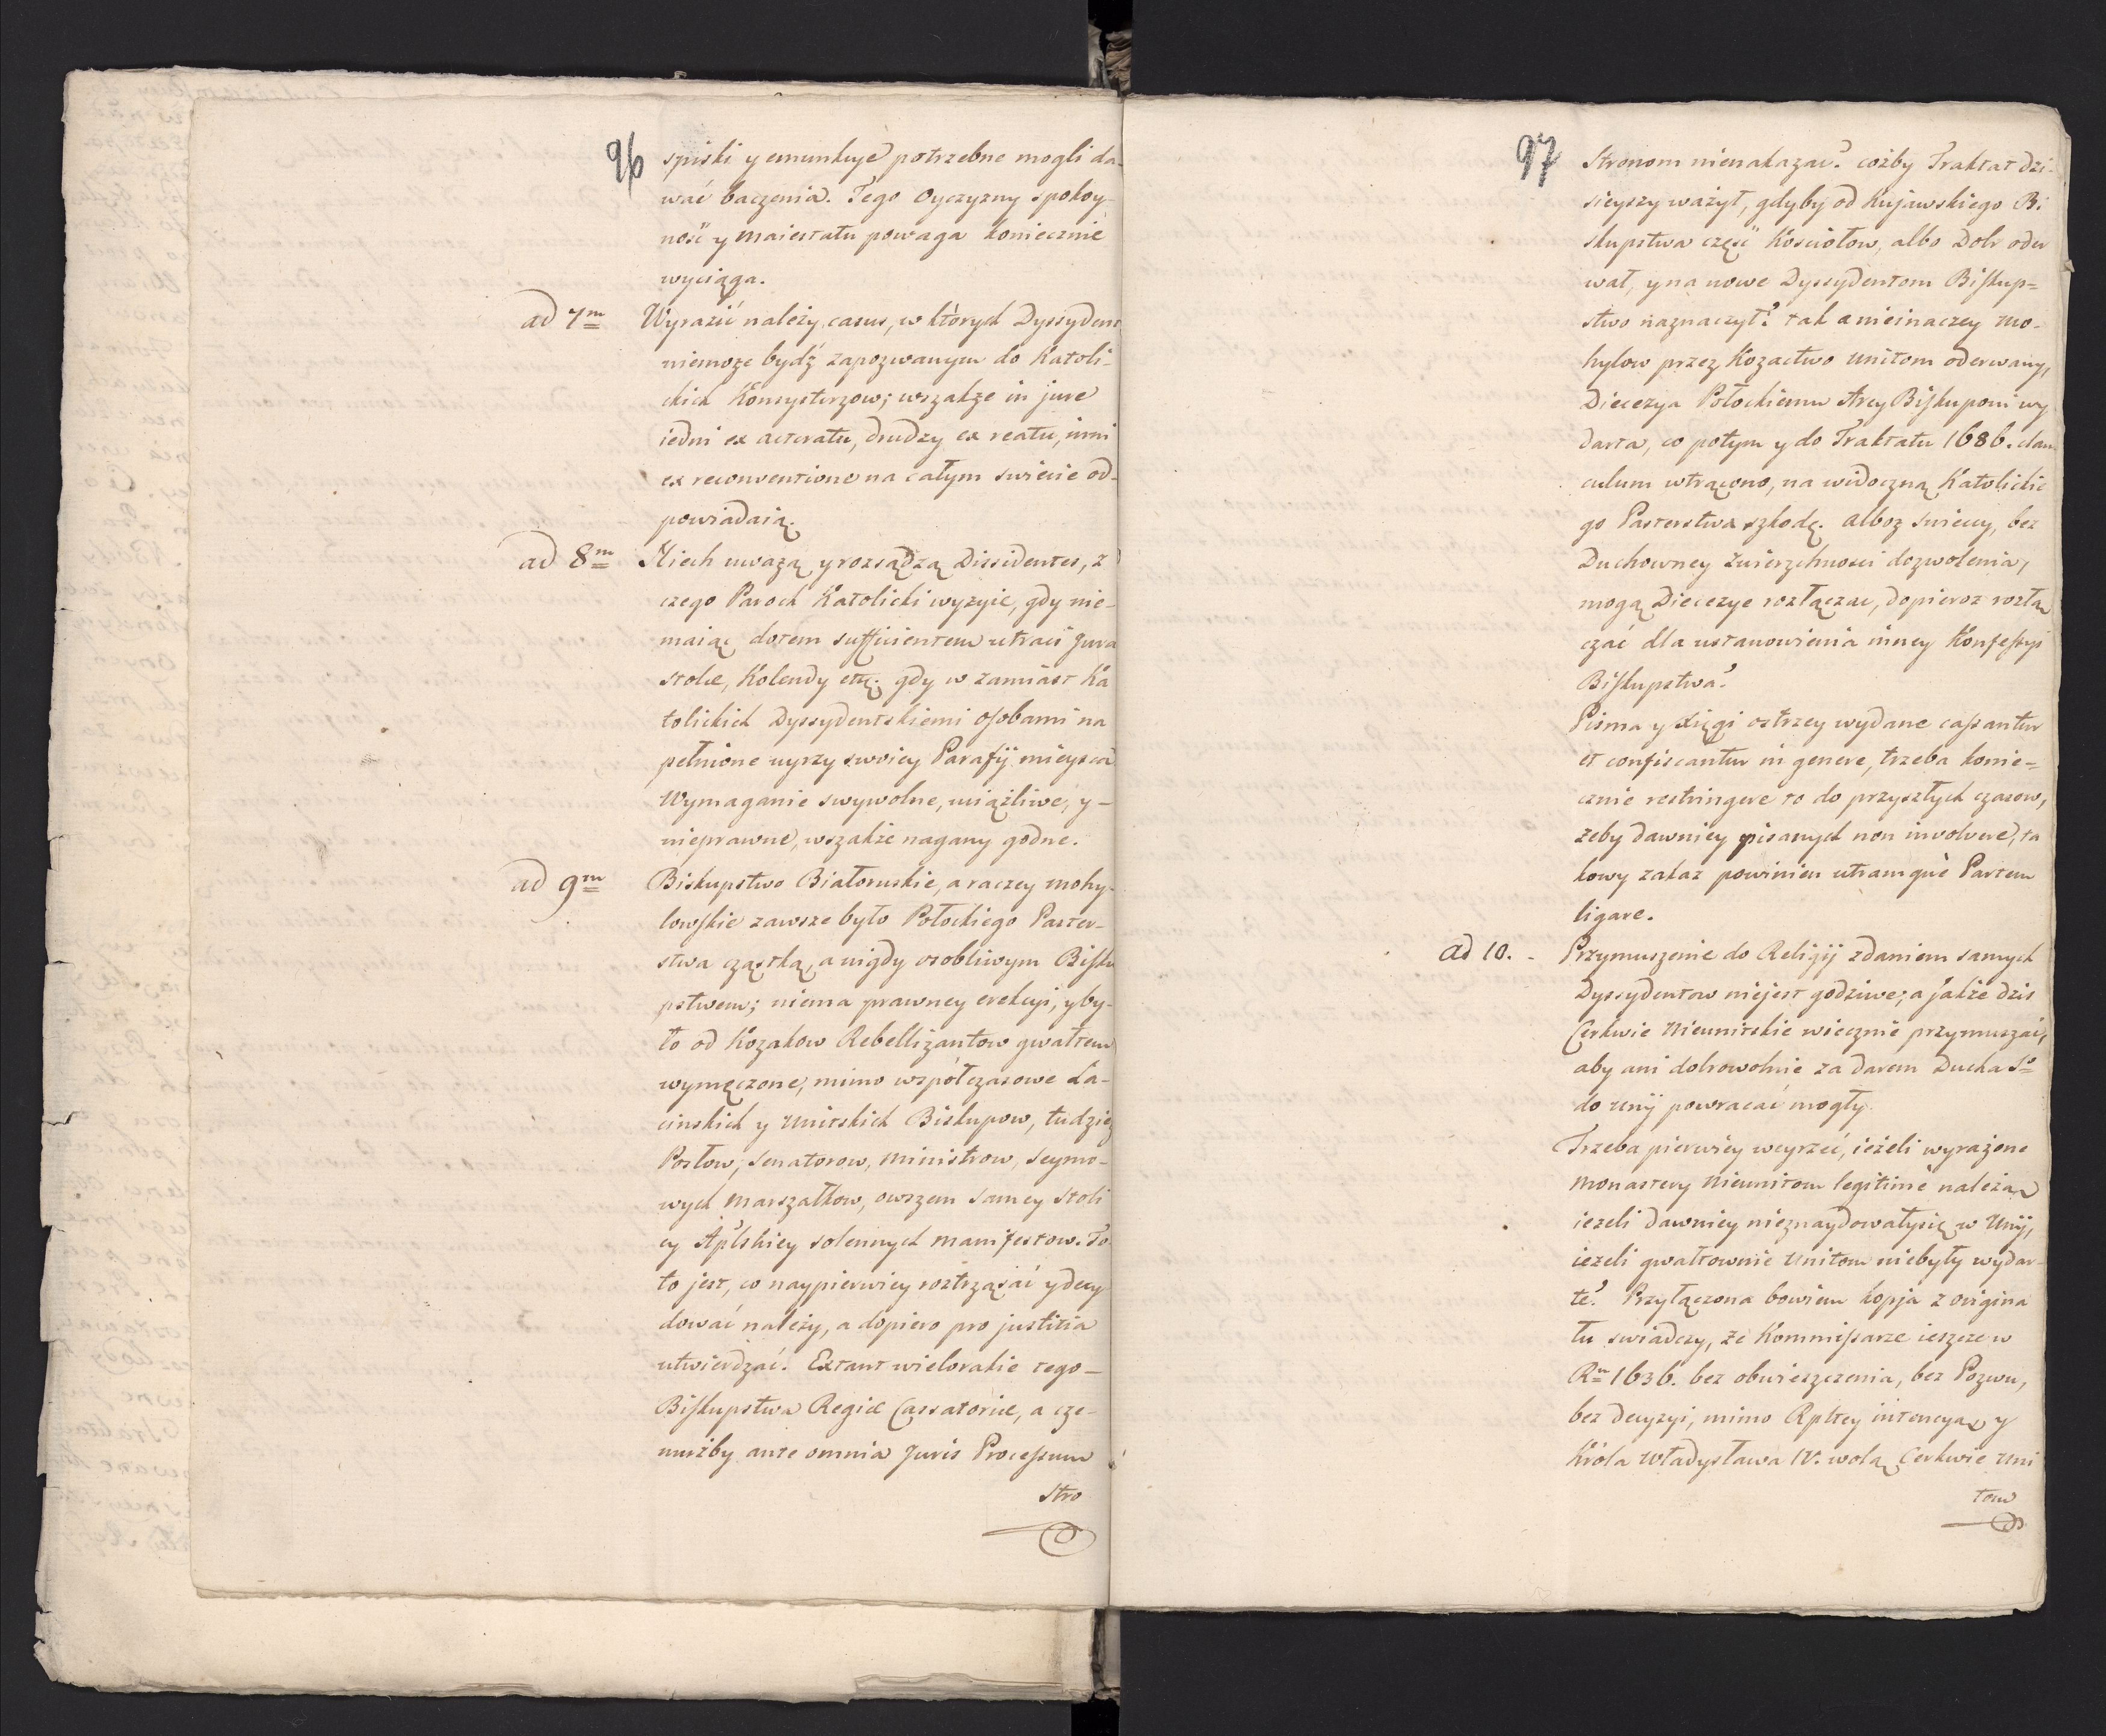 96
spiski y emunkcye potrzebne mogli da-
wać baczenia. Tego Oyczyzny spokoy-
ność y Maiestatu powaga koniecznie
wyciąga.
ad 7m Wyrazić należy casus, w których Dyssydent
niemoże bydź zapozwanym do Katoli-
ckich Konsystorzow; wszakże in jure
iedni ex actoratu, drudzy ex reatu, inni
ex reconventione na całym swiecie od-
powiadaią.
ad 8m Niech uwazą y rozsądzą Dissidentes, z
czego Paroch Katolicki wyzyie, gdy nie-
maiąc dotem sufficientem utraci Jura
stolæ, Kolendy etc. gdy w zamiast Ka
tolickich Dyssydentskiemi osobami na
pełnione uyrzy swoiey Parafij mieysca
Wymaganie swywolne, uciążliwe, y -
nieprawne, wszakże nagany godne.
ad 9m Biskupstwo Białoruskie, a raczey Mohy-
lowskie zawsze było Połockiego Paster-
stwa cząstką, a nigdy osobliwym Bisku
pstwem; niema prawney erekcyi, y by-
ło od Kozakow Rebellizantow gwałtem
wymęczone, mimo wspołczasowe Ła-
cinskich y Unitskich Biskupow, tudziez
Posłow, Senatorow, Ministrow, Seymo-
wych Marszałkow, owszem samey Stoli
cy Aplskiey solennych Manifestow. To
to jest, co naypierwiey roztrząsać y decy
dować należy, a dopiero pro justitia
utwierdzać. Extant wielorakie tego -
Biskupstwa Regiæ Cassatoriæ, a cze-
mużby ante omnia Juris Processum
Stro
97
Stronom nienakazać? cożby Traktat dzi-
sieyszy ważył, gdyby od Kujawskiego Bi
skupstwa część Kościołow, albo Dobr oder
wał, y na nowe Dyssydentom Biskup=
stwo naznaczył? tak a nieinaczey Mo-
hylow przez Kozactwo Unitom oderwany,
Diecezya Połockiemu Arcy Biskupowi wy
darta, co potym y do Traktatu 1686. clan
culum wtrącono, na widoczną Katolickie
go Pasterstwa szkodę. Alboz swieccy, bez
Duchowney Zwierzchności dozwolenia,
mogą Diecezye rozłączac, dopieroz rozłą
czać dla ustanowienia inney Konfessyi
Biskupstwa?
Pisma y Xięgi ostrzey wydane cassantur
et confiscantur in genere, trzeba konie=
cznie restringere to do przyszłych czasow,
żeby dawniey pisanych non involvere, ta
kowy zakaz powinien utramque Partem
ligare.
Ad 10. - Przymuszenie do Religij zdaniem samych
Dyssydentow niejest godziwe; a jakże dzis
Cerkwie Nieunitskie wiecznie przymuszać,
aby ani dobrowolnie za darem Ducha So
do Unij powracać mogły.
Trzeba pierwiey weyrzeć, ieżeli wyrażone
Monastery Nieunitom legitime należą
ieżeli dawniey nieznaydowałysię w Unij,
ieżeli gwałtownie Unitom niebyły wydar-
te? Przyłączona bowiem kopja z origina
łu swiadczy, że Kommissarze ieszcze w
Ru 1636. bez obwieszczenia, bez Pozwu,
bez decyzyi, mimo Rpltey intencyą y
Króla Władysława IV. wolą Cerkwie Uni
tow